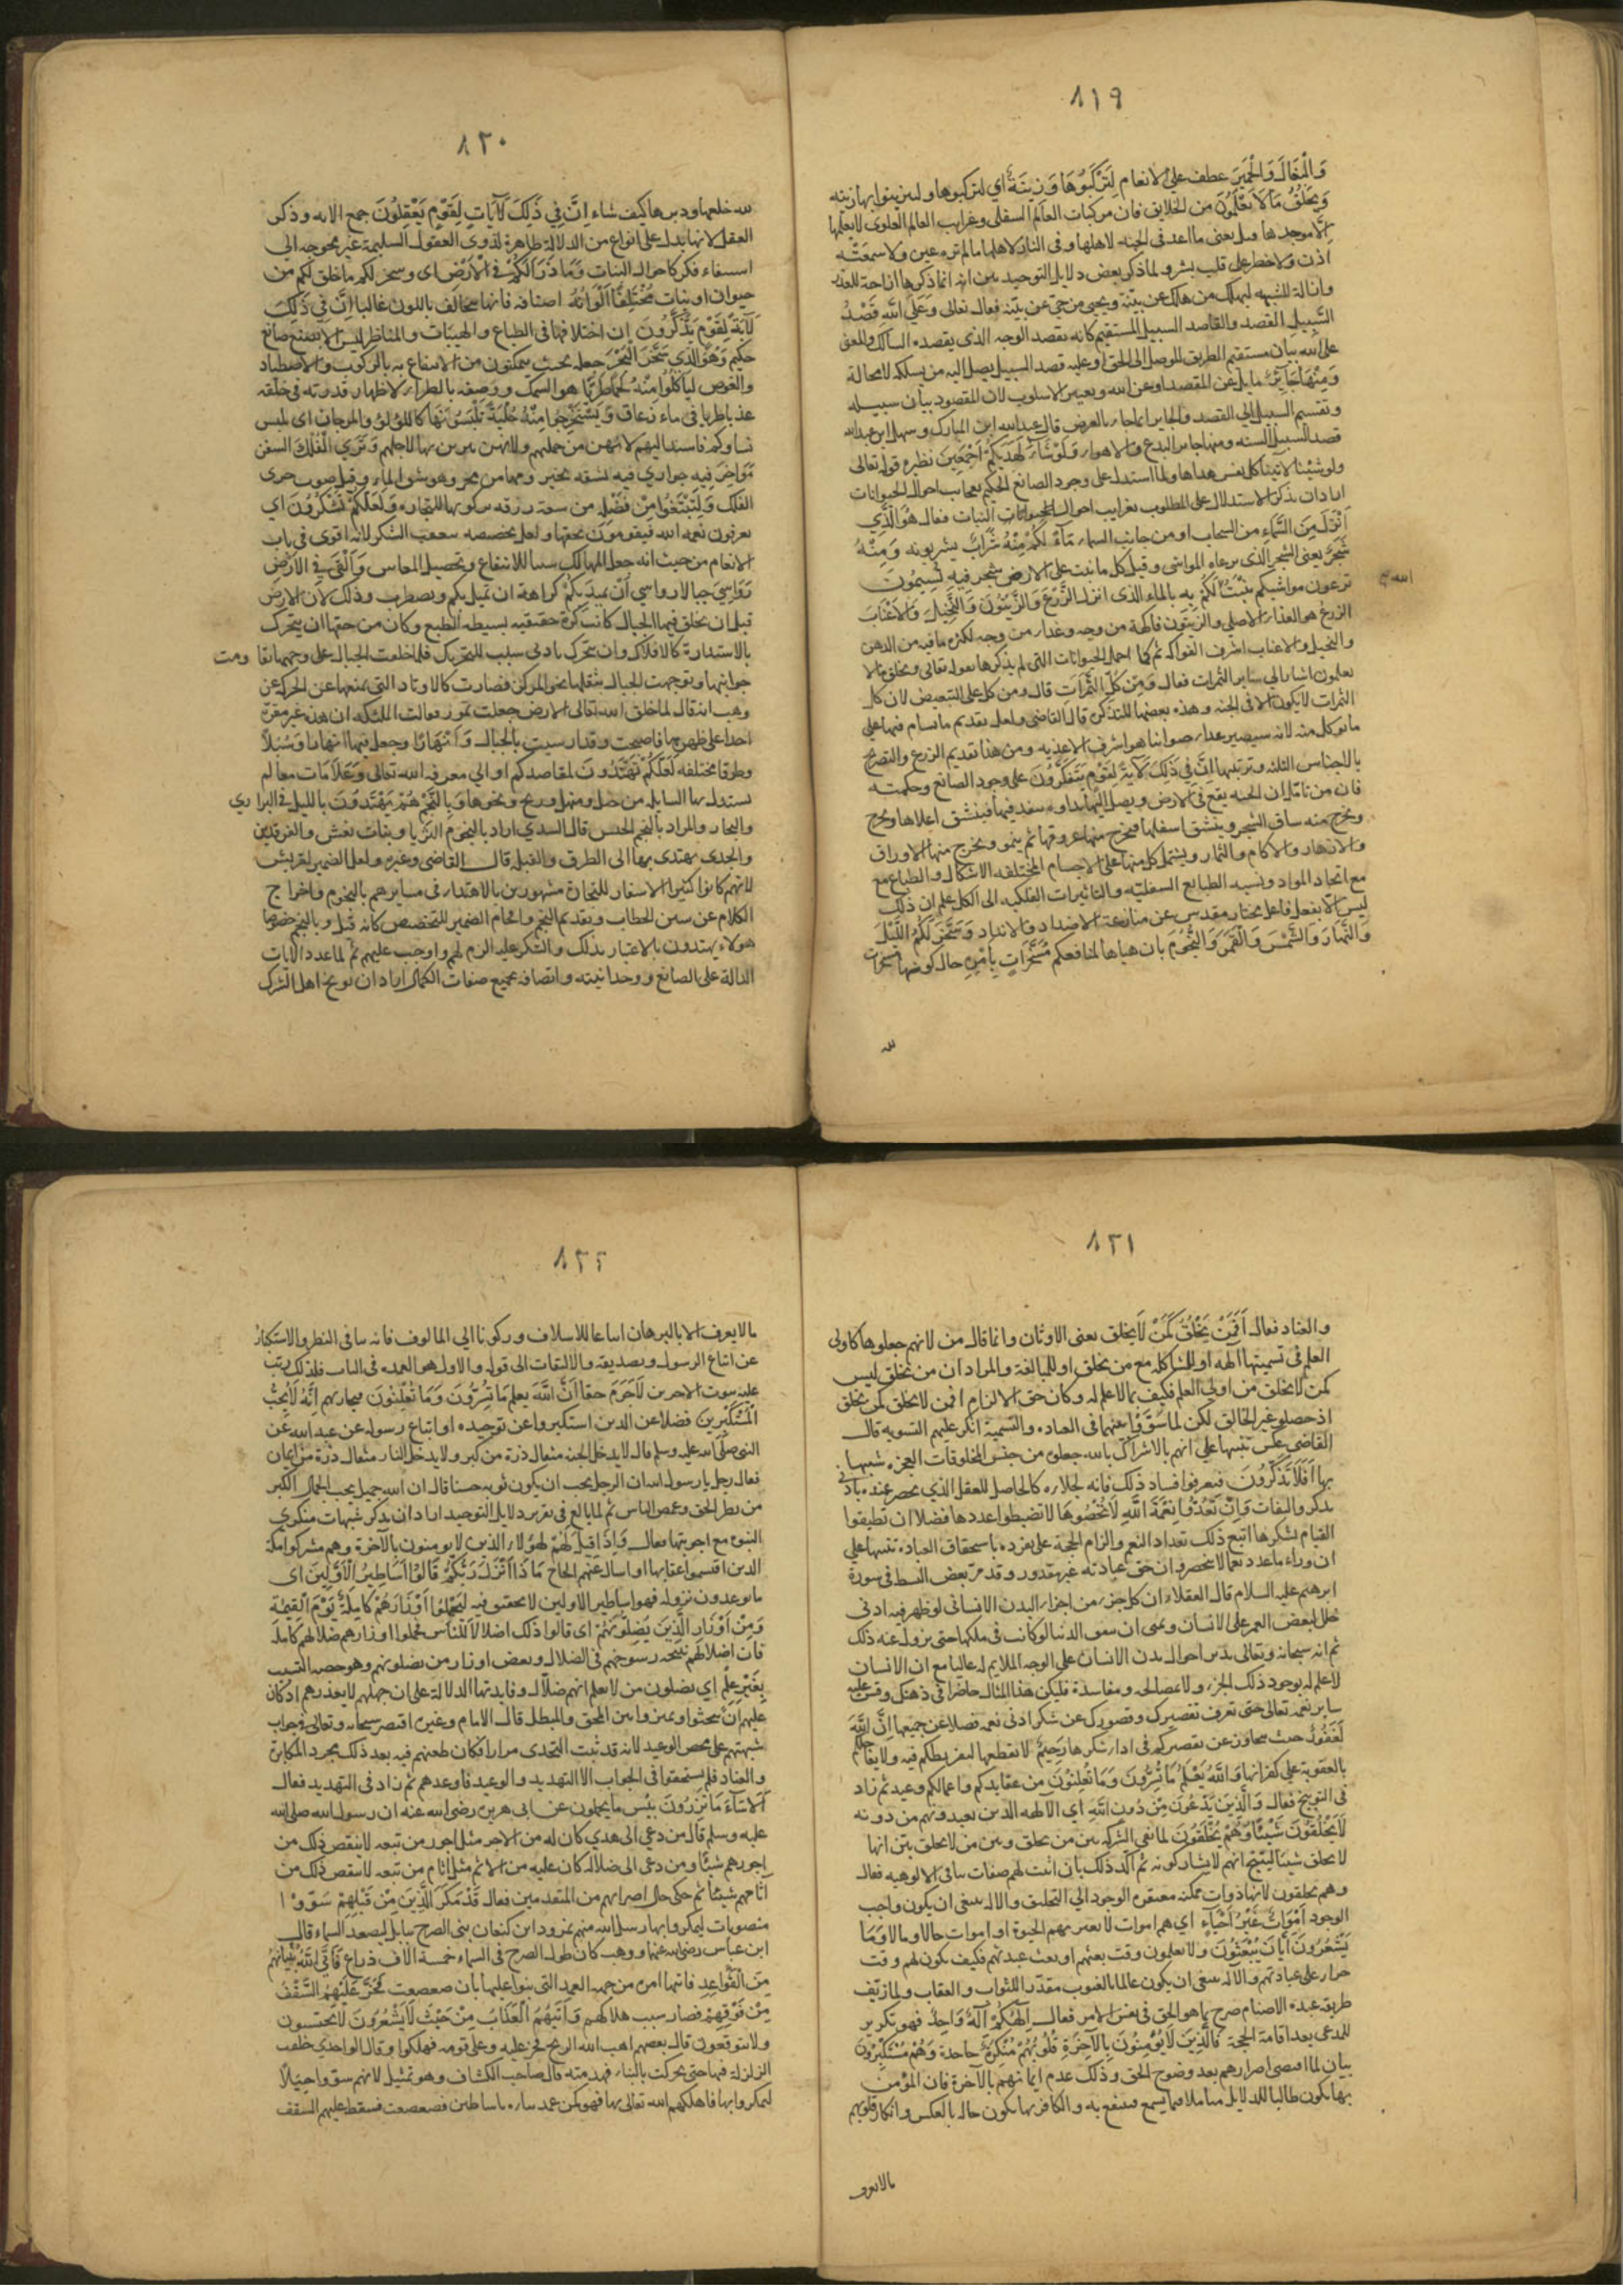 ٨١٩
وَالْبِغَالَ وَالْحَمِيرَ عطف على الانعام لِتَرْكَبُوهَا وَزِينَةً اي لتركبوها ولتتزينوا بها زينه
وَيَخْلُقُ مَا لَا تَعْلَمُونَ من الخلايق فان مركبات العالم السفلى وغرايب العالم العلوى لا يعلمها
الا موجدها وقيل يعنى ما اعد فى الجنه لاهلها وفى النار لاهلها مالم تره عين ولا سمعته
اذن ولا خطر على قلب بشر ولما ذكر بعض دلايل التوحيد بين انه انما ذكرها ازاحة للعذر
وازالة للشبهه ليهلك من هلك عن بينة ويحيى من حي عن بينة فعال تعالى وَعَلَى اللَّهِ قَصْدُ
السَّبِيلِ القصد والقاصد السبيل المستقيم كانه يقصد الوجه الذى يقصده السالك والمعنى
على الله بيان مستقيم الطريق الموصل الى الحق او عليه قصد السبيل يصل اليه من يسلكه لا محالة
وَمِنْهَا جَائِرٌ مايل عن المقصد او عن الله وتغيير الاسلوب لان المقصود بيان سبيله
وتقسيم السبيل الى القصد والجاير انما جاء بالعرض قال عبدالله ابن المبارك وسهل ابن عبدالله
قصد السبيل السنه ومنها جاير البدع والاهواء وَلَوْ شَاءَ لَهَدَيكُمْ أَجْمَعِينَ نظيره قوله تعالى
ولو شئنا لاتينا كل نفس هداها ولما استدل على وجود الصانع الحكيم بعجايب احوال الحيوانات
اراد ان يذكر الاستدلال على المطلوب بغرايب احوال النبات فعال هُوَ الَّذِي
أَنْزَلَ مِنَ السَّمَاءِ من السحاب او من جانب السماء مَاءً لَكُمْ مِنْهُ شَرَابٌ يشربونه وَمِنْهُ
شَجَرٌ يعنى الشجر الذى يرعاه المواشى وقيل كل ما نبت على الارض شجر فِيهِ تُسِيمُونَ
ترعون مواشيكم يُنْبِتُ لَكُمْ بِهِ بالماء الذى انزل الزَّرْعَ وَالزَّيْتُونَ وَالنَّخِيلَ وَالْأَعْنَابَ
الله
الزرع هو الغذاء الاصلي والزيتون فاكهة من وجه وغذاء من وجه لكثره ما فيه من الدهن
والنخيل والاعناب اشرف الفواكه ثم كما اجمل الحيوانات التى لم يذكرها بقوله تعالى ويخلق مالا
تعلمون اشار الى ساير الثمرات فعال وَمِنْ كُلِّ الثَّمَرَاتِ قال ومن كل على التبعيض لان كل
الثمرات لا يكون الا فى الجنه وهذه بعضها للتذكره قال القاضى ولعل تقديم ما تسام فيها على
ما يوكل منه لانه سيصير غذاء حيوانيا هو اشرف الاغذيه ومن هذا تقديم الزرع والتصريح
بالاجناس الثلثه وترتيبها إِنَّ فِي ذَلِكَ لَآيَةً لِقَوْمٍ يَتَفَكَّرُونَ على وجود الصانع وحكمته
فان من تامل ان الحبه يقع فى الارض ويصل اليها نداوه ينفد فيها فينشق اعلاها ويخرج
ويخرج منه ساق الشجر وينشق اسفلها فيخرج منها عروقها ثم ينمو ويخرج منها الاوراق
والازهار والاكام والثمار ويشتمل كل منها على الاجسام المختلفه الاشكال والطباع مع
مع اتحاد المواد ونسبه الطبايع السفليه والتاثيرات الفلكيه الى الكل علم ان ذلك
ليس الا بفعل فاعل مختار مقدس عن منازعة الاضداد والانداد وَسَخَّرَ لَكُمُ اللَّيْلَ
وَالنَّهَارَ وَالشَّمْسَ وَالْقَمَرَ وَالنُّجُومَ بان هياها لمنافعكم مُسَخَّرَاتٍ بِأَمْرِهِ حال كونها مسخرات
لله
٨٢٠
لله خلقها ودبرها كيف شاء إِنَّ فِي ذَلِكَ لَآيَاتٍ لِقَوْمٍ يَعْقِلُونَ جمع الايه وذكر
العقل لانها يدل على انواع من الدلالة ظاهرة لذوى العقول السليمة غير محوجه الى
استيفاء فكر كاحوال النبات وَمَا ذَرَأَ لَكُمْ فِي الْأَرْضِ اى وسخر لكم ما خلق لكم من
حيوان او نبات مُخْتَلِفًا أَلْوَانُهُ اصنافه فانها يتخالف باللون غالبا إِنَّ فِي ذَلِكَ
لَآيَةً لِقَوْمٍ يَذَّكَّرُونَ ان اختلافها فى الطباع والهيئات والمناظر ليس الا بصنع صانع
حكيم وَهُوَ الَّذِي سَخَّرَ الْبَحْرَ جعله بحيث يتمكنون من الانتفاع به بالركوب والاصطياد
والغوص لِتَأْكُلُوا مِنْهُ لَحْمًا طَرِيًّا هو السمك ووصفه بالطراءه لاظهار قدرته فى خلقه
عذبا طريا فى ماء زعاق وَتَسْتَخْرِجُوا مِنْهُ حِلْيَةً تَلْبَسُونَهَا كاللؤلؤ والمرجان اى يلبس
نساوكم فاسند اليهم لانهن من جملتهم ولانهن يتزين بها لاجلهم وَتَرَى الْفُلْكَ السفن
مَوَاخِرَ فِيهِ جوارى فيه تشقه بحيزومها من مخر وهو شق الماء وقيل صوت جرى
الفلك وَلِتَبْتَغُوا مِنْ فَضْلِهِ من سعة رزقه بركوبها للتجاره وَلَعَلَّكُمْ تَشْكُرُونَ اي
تعرفون نعمه الله فيقومون بحقها ولعل تخصيصه بتعقيب الشكر لانه اقوى فى باب
الانعام من حيث انه جعل المهالك سببا للانتفاع وتحصيل المعاش وَأَلْقَى فِي الْأَرْضِ
رَوَاسِيَ جبالا رواسي أَنْ تَمِيدَ بِكُمْ كراهة ان تميل بكم ويضطرب وذلك لان الارض
قبل ان يخلق فيها الجبال كانت كرة حقيقيه بسيطه الطبع وكان من حقها ان يتحرك
بالاستدارة كالافلاك وان يتحرك بادنى سبب للتحريك فلما خلقت الجبال على وجهها تفاوتت
جوانبها وتوجهت الجبال بثقلها نحو المركز فصارت كالاوتاد التى يمنعها عن الحركه عن
وهب انه قال لما خلق الله تعالى الارض جعلت تمور فعالت الملئكه ان هذه غير مقرة
احدا على ظهرها فاصبحت وقد ارسيت بالجبال وَأَنْهَارًا وجعل فيها انهارا وَسُبُلًا
وطرقا مختلفه لَعَلَّكُمْ تَهْتَدُونَ لمقاصدكم او الى معرفه الله تعالى وَعَلَامَاتٍ معالم
يستدل بها السابله من جبل ومنهل وريح ونحوها وَبِالنَّجْمِ هُمْ يَهْتَدُونَ بالليل فى البراري
والبحار والمراد بالنجم الجنس قال السدي اراد بالنجوم الثريا وبنات نعش والفرقدين
والجدى يهتدى بها الى الطرق والقبله قال القاضى وغيره ولعل الضمير لقريش
لانهم كانوا كثيرا الاسفار للتجارة مشهورين بالاهتداء فى مسايرهم بالنجوم واخراج
الكلام عن سنن الخطاب وتقديم النجم واقحام الضمير للتخصيص كانه قيل وبالنجم خصوصا
هولاء يهتدون بالاعتبار بذلك والشكر عليه الزم لهم واوجب عليهم ثم لما عدد الايات
الدالة على الصانع ووحدانيته واتصافه بجميع صفات الكمال اراد ان يوبخ اهل الشرك
٨٢١
والعناد فعال أَفَمَنْ يَخْلُقُ كَمَنْ لَا يخلق يعنى الاوثان وانما قال من لانهم جعلوها كاولى
العلم فى تسميتها الهه او للمشاكله مع من يخلق او للمبالغة والمراد ان من يخلق ليس
كمن لا يخلق من اولى العلم فكيف بما لا علم له وكان حق الالزام افمن لا يخلق كمن يخلق
اذ حصلو غير الخالق لكن لما سَوَّوْا بينهما فى العباده والتسمية انكر عليهم التسويه قال
القاضى عكس تنبيها على انهم بالاشراك بالله جعلوه من جنس المخلوقات العجزه شبيها
بها أَفَلَا تَذَكَّرُونَ فتعرفوا فساد ذلك فانه لجلاءه كالحاصل للعقل الذي يحضر عنده بادنى
تذكر والتفات وَإِنْ تَعُدُّوا نِعْمَةَ اللَّهِ لَا تُحْصُوهَا لا تضبطوا عددها فضلا ان تطيقوا
القيام بشكرها اتبع ذلك تعداد النعم والزام الحجة على تفرده باستحقاق العباده تنبيها على
ان وراء ما عدد نعما لا ينحصر وان حق عبادته غير مقدور وقد مر بعض البسط فى سورة
ابرهيم عليه السلام قال العقلاء ان كل جزء من اجزاء البدن الانسانى لو ظهر فيه ادنى
خلل لنغص العمر على الانسان وتمنى ان ينفق الدنيا لو كانت فى ملكها حتى يزول عنه ذلك
ثم انه سبحانه وتعالى يدبر احوال بدن الانسان على الوجه الملايم له غالبا مع ان الانسان
لا علم له بوجود ذلك الجزء ولا بمصالحه ومفاسده فليكن هذا المثال حاضرا فى ذهنك وقس عليه
ساير نعمه تعالى حتى تعرف تقصيرك وقصورك عن شكر ادنى نعمه فضلا عن جميعها إِنَّ اللَّهَ
لَغَفُورٌ حيث يتجاوز عن تقصيركم فى اداء شكرها رَحِيمٌ لا يقطعها لتفريطكم فيه ولا يعاجلكم
بالعقوبه على كفرانها وَاللَّهُ يَعْلَمُ مَا تُسِرُّونَ وَمَا تُعْلِنُونَ من عقايدكم واعمالكم وعيد ثم زاد
فى التوبيخ فعال وَالَّذِينَ يَدْعُونَ مِنْ دُونِ اللَّهِ اي الالهه الذين تعبدونهم من دونه
لَا يَخْلُقُونَ شَيْئًا وَهُمْ يُخْلَقُونَ لما نفى الشركه بين من يخلق وبين من لا يخلق بين انها
لا يخلق شيئا لينتج انهم لا يشاركونه ثم اكد ذلك بان اثبت لهم صفات ينافى الالوهيه فعال
وهم يخلقون لانها ذوات ممكنه مفتقره الوجود الى التخليق والاله ينبغى ان يكون واجب
الوجود أَمْوَاتٌ غَيْرُ أَحْيَاءٍ اي هم اموات لا يعتريهم الحيوة او اموات حالا ومالا وَمَا
يَشْعُرُونَ أَيَّانَ يُبْعَثُونَ ولا يعلمون وقت بعثهم او بعث عبدتهم فكيف يكون لهم وقت
جزاء على عبادتهم والاله ينبغى ان يكون عالما بالغيوب مقدرا للثواب والعقاب ولما زيف
طريقه عبده الاصنام صرح بما هو الحق فى نفس الامر فعال إِلَهُكُمْ إِلَهٌ وَاحِدٌ فهو تكرير
للمدعى بعد اقامة الحجة فَالَّذِينَ لَا يُؤْمِنُونَ بِالْآخِرَةِ قُلُوبُهُمْ مُنْكِرَةٌ جاحدة وَهُمْ مُسْتَكْبِرُونَ
بيان لما اقتضى اصرارهم بعد وضوح الحق وذلك عدم ايمانهم بالآخرة فان المؤمن
بها يكون طالبا للدلايل متاملا فيما يسمع فينتفع به والكافر بها يكون حاله بالعكس وانكار قلوبهم
مالايعرف
٨٢٢
مالا يعرف الا بالبرهان اتباعا للاسلاف وركونا الى المالوف فانه ينافى النظر والاستكبار
عن اتباع الرسول وتصديقه والالتفات الى قوله والاول هو العمده فى الباب فلذلك رتب
عليه ثبوت الاخرين لَا جَرَمَ حقا أَنَّ اللَّهَ يعلم مَا يُسِرُّونَ وَمَا يُعْلِنُونَ فيجازيهم إِنَّهُ لَا يُحِبُّ
الْمُسْتَكْبِرِينَ فضلا عن الذين استكبروا عن توحيده او اتباع رسوله عن عبد الله عن
النبى صلى الله عليه وسلم قال لا يدخل الجنه مثقال ذرة من كبر ولا يدخل النار مثقال ذرة من ايمان
فعال رجل يا رسول الله ان الرجل يحب ان يكون ثوبه حسنا قال ان الله جميل يحب الجمال الكبر
من بطر الحق وغمص الناس ثم لما بالغ فى تقرير دلايل التوحيد اراد ان يذكر شبهات منكري
النبوه مع اجوبتها فعال وَإِذَا قِيلَ لَهُمْ لهؤلاء الذين لا يومنون بالآخرة وهم مشركوا مكة
الذين اقتسموا عقابها او اسال عنهم الحاج مَاذَا أَنْزَلَ رَبُّكُمْ قَالُوا أَسَاطِيرُ الْأَوَّلِينَ اى
ما توعدون نزوله فهو اساطير الاولين لا تحقيق فيه لِيَحْمِلُوا أَوْزَارَهُمْ كَامِلَةً يَوْمَ الْقِيمَةِ
وَمِنْ أَوْزَارِ الَّذِينَ يُضِلُّونَهُمْ اى قالوا ذلك اضلالا للناس فحملوا اوزار ضلالهم كاملة
فان اضلالهم نتيجه رسوخهم فى الضلال وبعض اوزار من يضلونهم وهو حصه التسبب
بِغَيْرِ عِلْمٍ اي يضلون من لا يعلم انهم ضلال وفايدتها الدلالة على ان جهلهم لا يعذرهم اذ كان
عليهم ان يبحثوا ويميزوا بين المحق والمبطل قال الامام وغيره اقتصر سبحانه وتعالى فى جواب
شبهتهم على محض الوعيد لانه قد ثبت التحدى مرارا فكان طعنهم فيه بعد ذلك مجرد المكابرة
والعناد فلم يستحقوا فى الجواب الا التهديد والوعيد فاوعدهم ثم زاد فى التهديد فعال
أَلَا سَاءَ مَا يَزِرُونَ بئس ما يحملون عن ابى هريرة رضى الله عنه ان رسول الله صلى الله
عليه وسلم قال من دعى الى هدي كان له من الاجر مثل اجور من تبعه لا ينقص ذلك من
اجورهم شيئا ومن دعى الى ضلاله كان عليه من الاثم مثل اثام من تبعه لا ينقص ذلك من
آثامهم شيئا ثم حكى حال اضرابهم من المتقدمين فعال قَدْ مَكَرَ الَّذِينَ مِنْ قَبْلِهِمْ سَوَّوْا
منصوبات ليمكروا بها رسل الله منهم نمرود ابن كنعان بنى الصرح ببابل ليصعد السماء قال
ابن عباس رضى الله عنهما ووهب كان طول الصرح فى السماء خمسة الاف ذراع فَأَتَى اللَّهُ بُنْيَانَهُمْ
مِنَ الْقَوَاعِدِ فاتيها امره من جهه العمد التى بنوا عليها بان ضعضعت فَخَرَّ عَلَيْهِمُ السَّقْفُ
مِنْ فَوْقِهِمْ فصار سبب هلاكهم وَأَتَيهُمُ الْعَذَابُ مِنْ حَيْثُ لَا يَشْعُرُونَ لا يحتسبون
ولا يتوقعون قال بعضهم اهب الله الريح فخر عليه وعلى قومه فهلكوا وقال الواحدي خلقت
الزلزلة فيها حتى تحركت بالبناء فهدمته قال صاحب الكشاف وهو تمثيل لانهم سووا حيلا
ليمكروا بها فاهلكهم الله تعالى بها فهو كمن عمد بناءه باساطين فضعضعت فسقط عليهم السقف